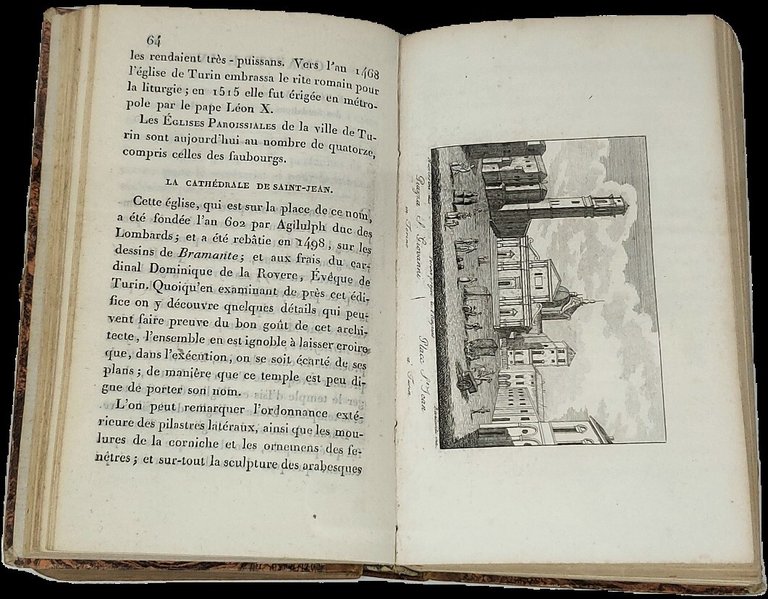 64
les rendaient très-puissans. Vers l'an 1468
l'église de Turin embrassa le rite romain pour
la liturgie; en 1515 elle fut érigée en métro-
pole par le pape Léon X.
Les Églises Paroissiales de la ville de Tu-
rin sont aujourd'hui au nombre de quatorze,
compris celles des faubourgs.
LA CATHÉDRALE DE SAINT-JEAN.
Cette église, qui est sur la place de ce nom,
a été fondée l'an 602 par Agilulph duc des
Lombards; et a été rebâtie en 1498, sur les
dessins de Bramante; et aux frais du car-
dinal Dominique de la Rovere, Évêque de
Turin. Quoiqu'en examinant de près cet édi-
fice on y découvre quelques détails qui peu-
vent faire preuve du bon goût de cet archi-
tecte, l'ensemble en est ignoble à laisser croire
que, dans l'exécution, on se soit écarté de ses
plans; de manière que ce temple est peu di-
gne de porter son nom.
L'on peut remarquer l'ordonnance exté-
rieure des pilastres latéraux, ainsi que les mou-
lures de la corniche et les ornemens des fe-
nêtres; et sur-tout la sculpture des arabesques
Piazza S. Giovanni
in Torino
Place St. Jean
à Turin